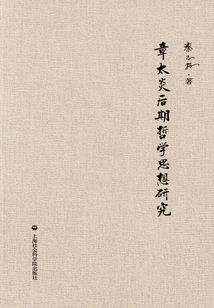 著
章太炎后期哲学思想研究
上海社会科学院出版社